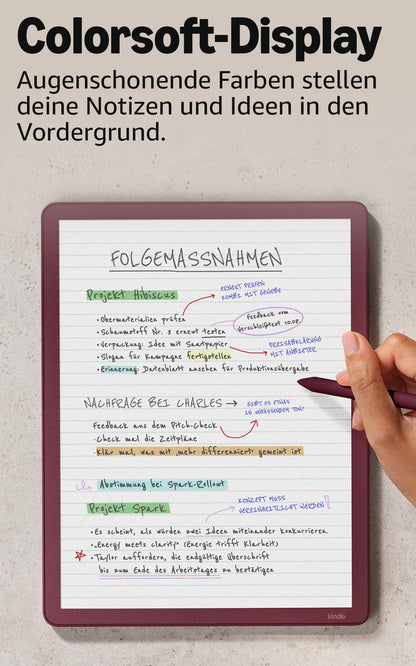 Colorsoft-Display
Augenschonende Farben stellen
deine Notizen und Ideen in den
Vordergrund.
FOLGEMASSNAHMEN
Projekt Hibiscus
ERNEUT PRÜFEN:
KOMBI MIT GEWEBE
• Obermaterialien prüfen
• Schaumstoff Nr. 3 erneut testen
Feedback vom
Verschleißtest 10.08.
• Verpackung: Idee mit Saatpapier
• Slogan für Kampagne fertigstellen
PREISABKLÄRUNG
MIT ANBIETER
• Erinnerung: Datenblatt ansehen für Produktionsübergabe
NACHFRAGE BEI CHARLES →
GIBT ES ETWAS
IN UMFASSENDEM TON?
Feedback aus dem Pitch-Check
• Check mal die Zeitpläne
• Klär mal, was mit „mehr differenziert" gemeint ist
Abstimmung bei Spark-Rollout
Projekt Spark
KONZEPT MUSS
VEREINHEITLICHT WERDEN!
• Es scheint, als würden zwei Ideen miteinander konkurrieren
• „Energy meets clarity" (Energie trifft Klarheit)
• Taylor auffordern, die endgültige Überschrift
bis zum Ende des Arbeitstages zu bestätigen
kindle